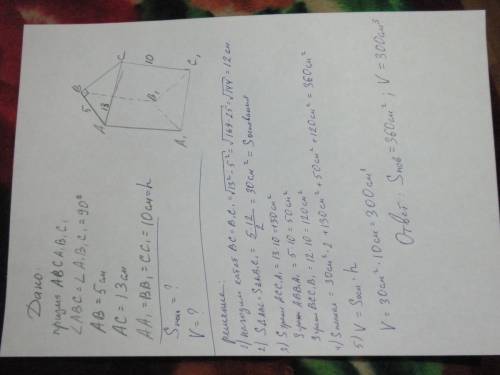 Дано:
призма ABCA₁B₁C₁
∠ABC = ∠A₁B₁C₁ = 90°
AB = 5 см
AC = 13 см
AA₁ = BB₁ = CC₁ = 10 см = h
Sпол = ?
V = ?
B
C
5
10
13
A
B₁
C₁
A₁
Решение:
1) находим катет BC = B₁C₁ = √13² - 5² = √169 - 25 = √144 = 12 см
2) SΔABC = SΔA₁B₁C₁ = 5·12/2 = 30 см² = Sоснования
3) Sграни ACC₁A₁ = 13·10 = 130 см²
Sграни ABB₁A₁ = 5·10 = 50 см²
Sграни BCC₁B₁ = 12·10 = 120 см²
4) Sполная = 30 см²·2 + 130 см² + 50 см² + 120 см² = 360 см²
5) V = Sосн · h
V = 30 см² · 10 см = 300 см³
Ответ: Sпов = 360 см² ; V = 300 см³